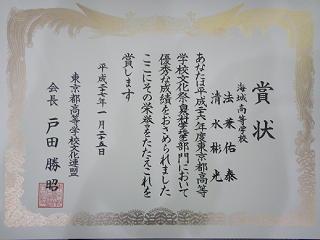 賞状
海城高等学校
法兼佑泰
清水彬光
あなたは平成二十六年度東京都高等
学校文化祭自然科学部門において
優秀な成績をおさめられました
ここにその栄誉をたたえこれを
賞します
平成二十七年一月二十五日
東京都高等学校文化連盟
会長 戸田勝昭